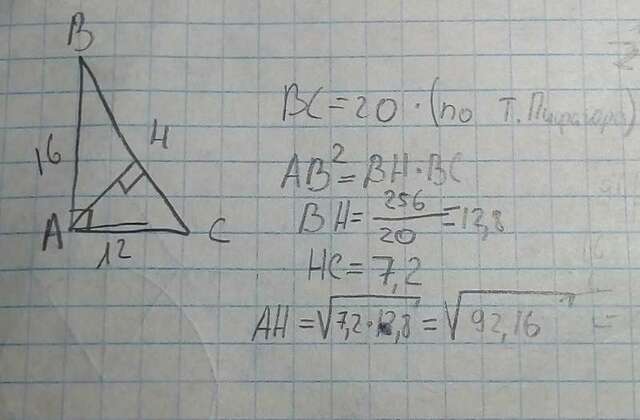 B
16
H
A
C
12
BC=20 · (по т. Пифагора)
AB²=BH·BC
BH=256/20=12,8
HC=7,2
AH=√7,2·12,8=√92,16 =